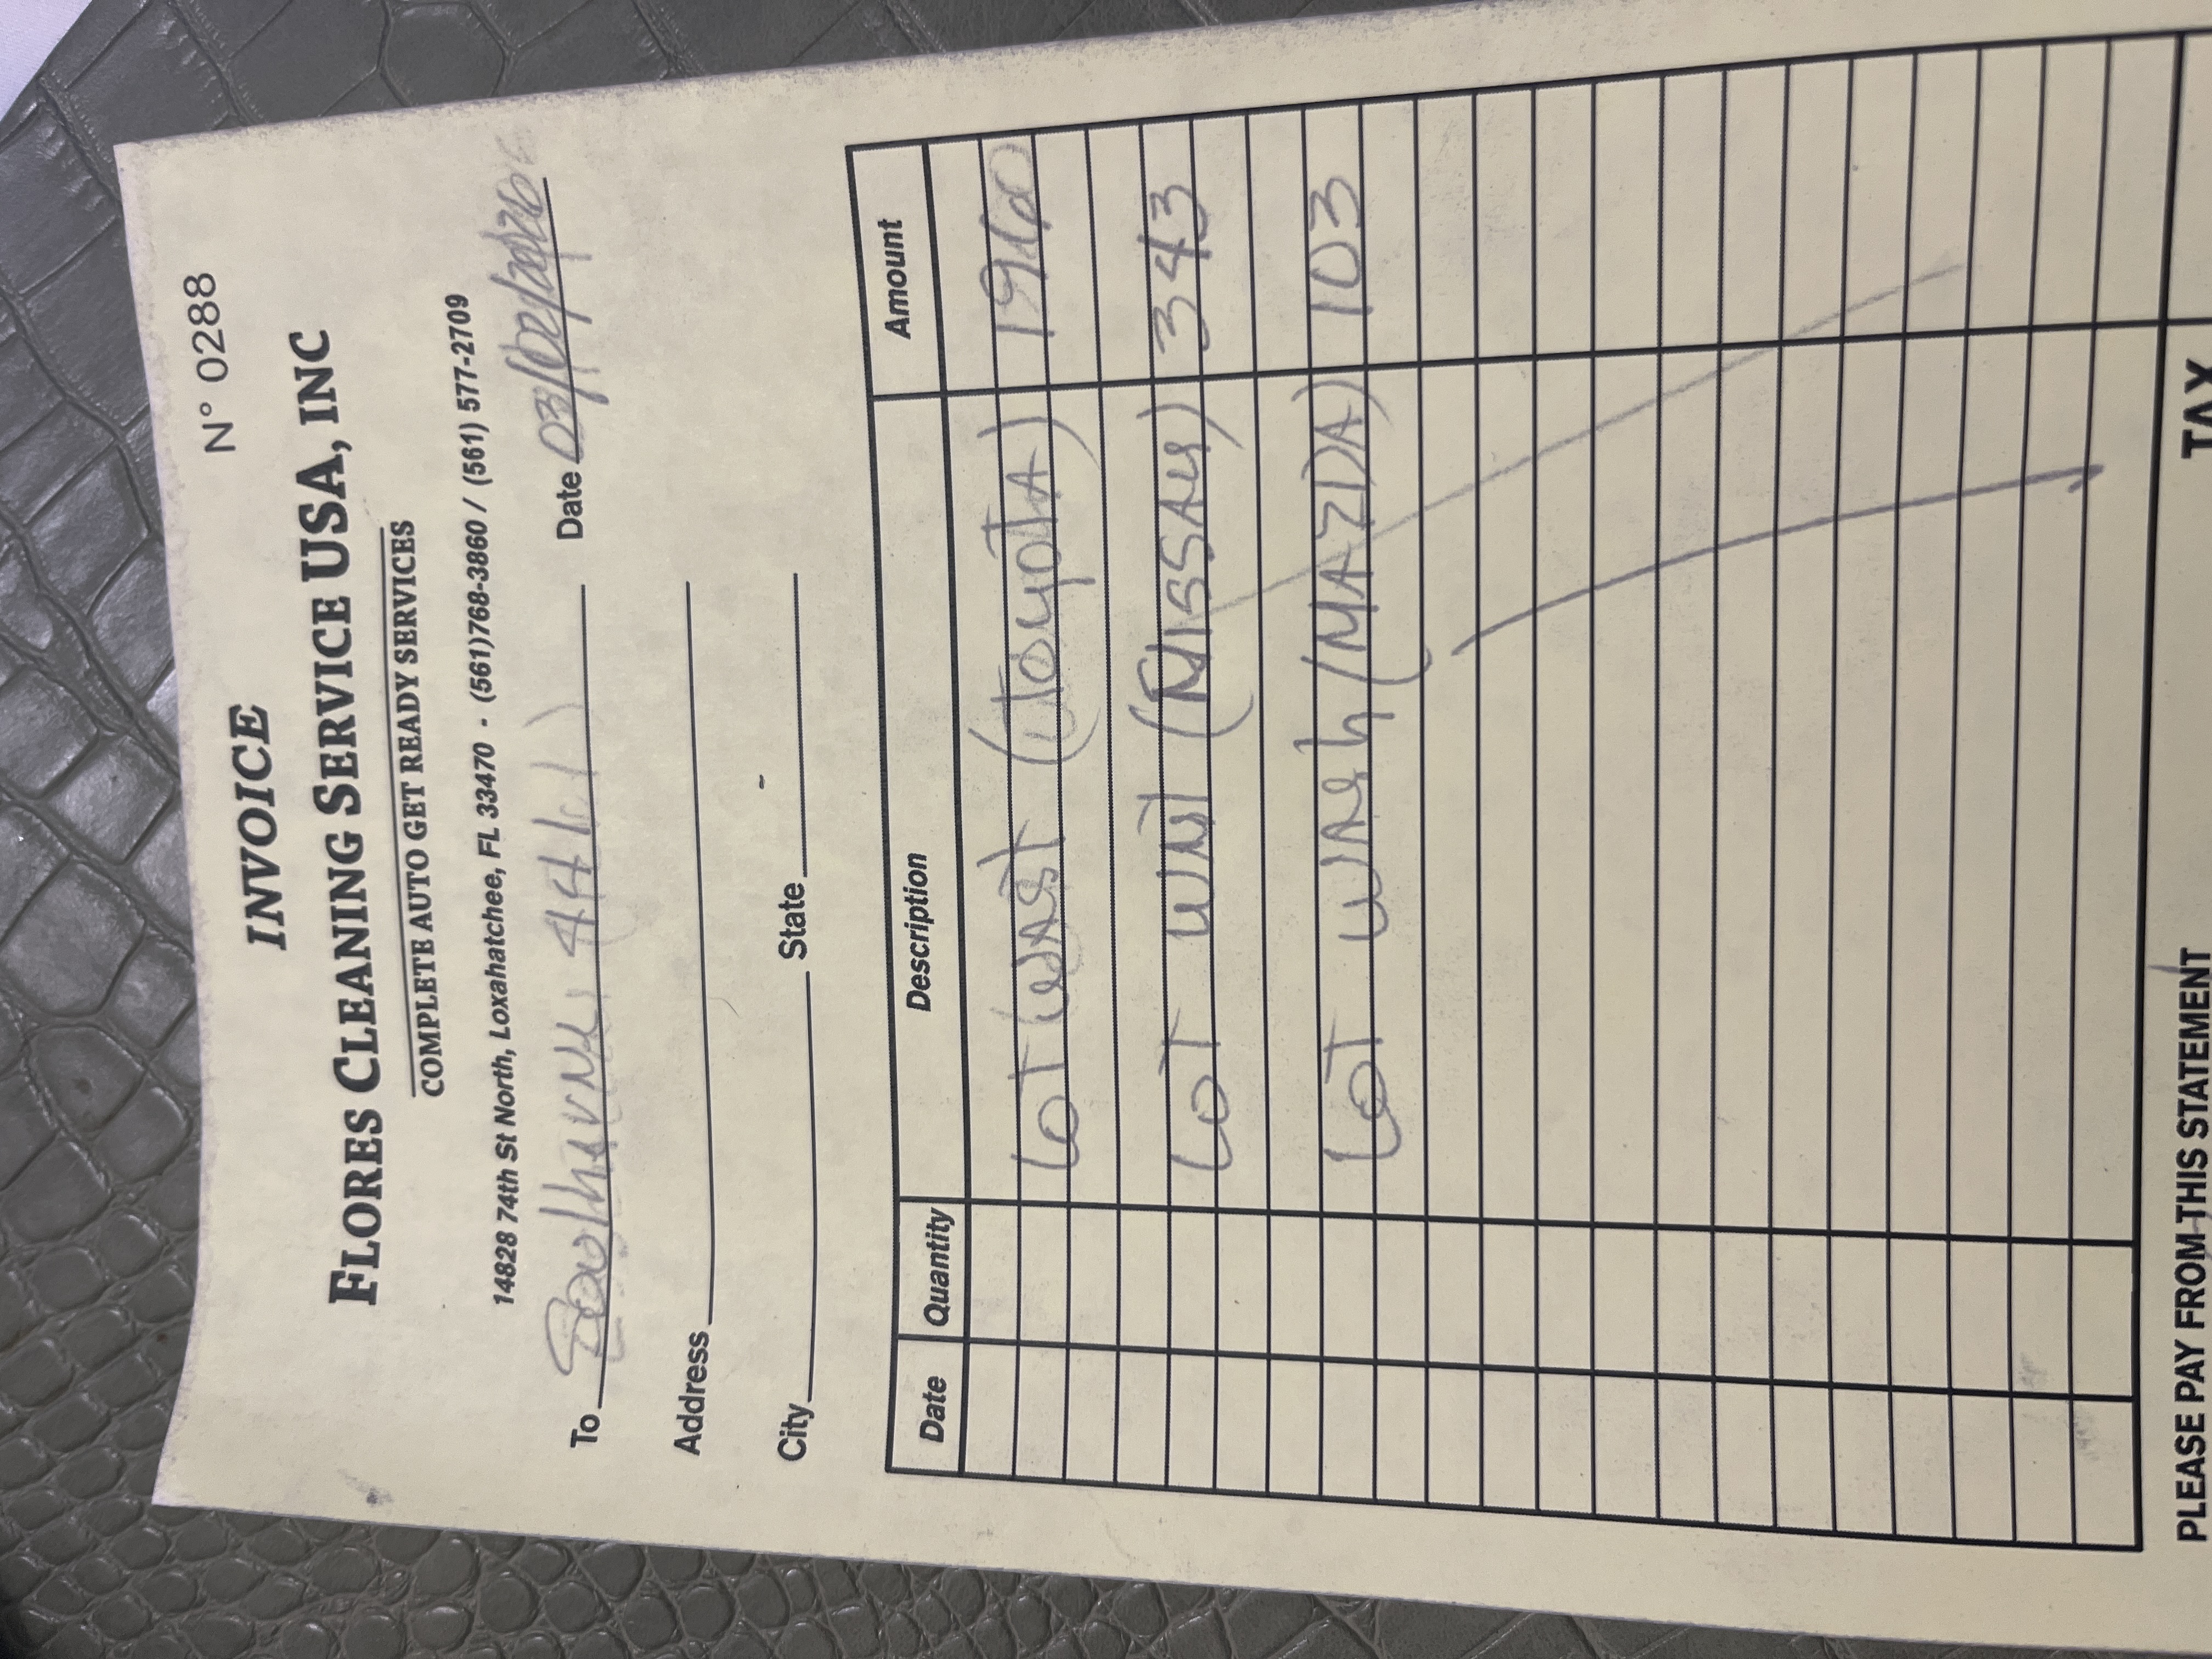 N° 0288
INVOICE
FLORES CLEANING SERVICE USA, INC
COMPLETE AUTO GET READY SERVICES
14828 74th St North, Loxahatchee, FL 33470 - (561)768-3860 / (561) 577-2709
To 441 Date 03/02/
Address
City State
Date Quantity Description Amount
LOT (Toyota)
LOT (NISSAN) 343
LOT wash (MAZDA) 103
PLEASE PAY FROM THIS STATEMENT TAX